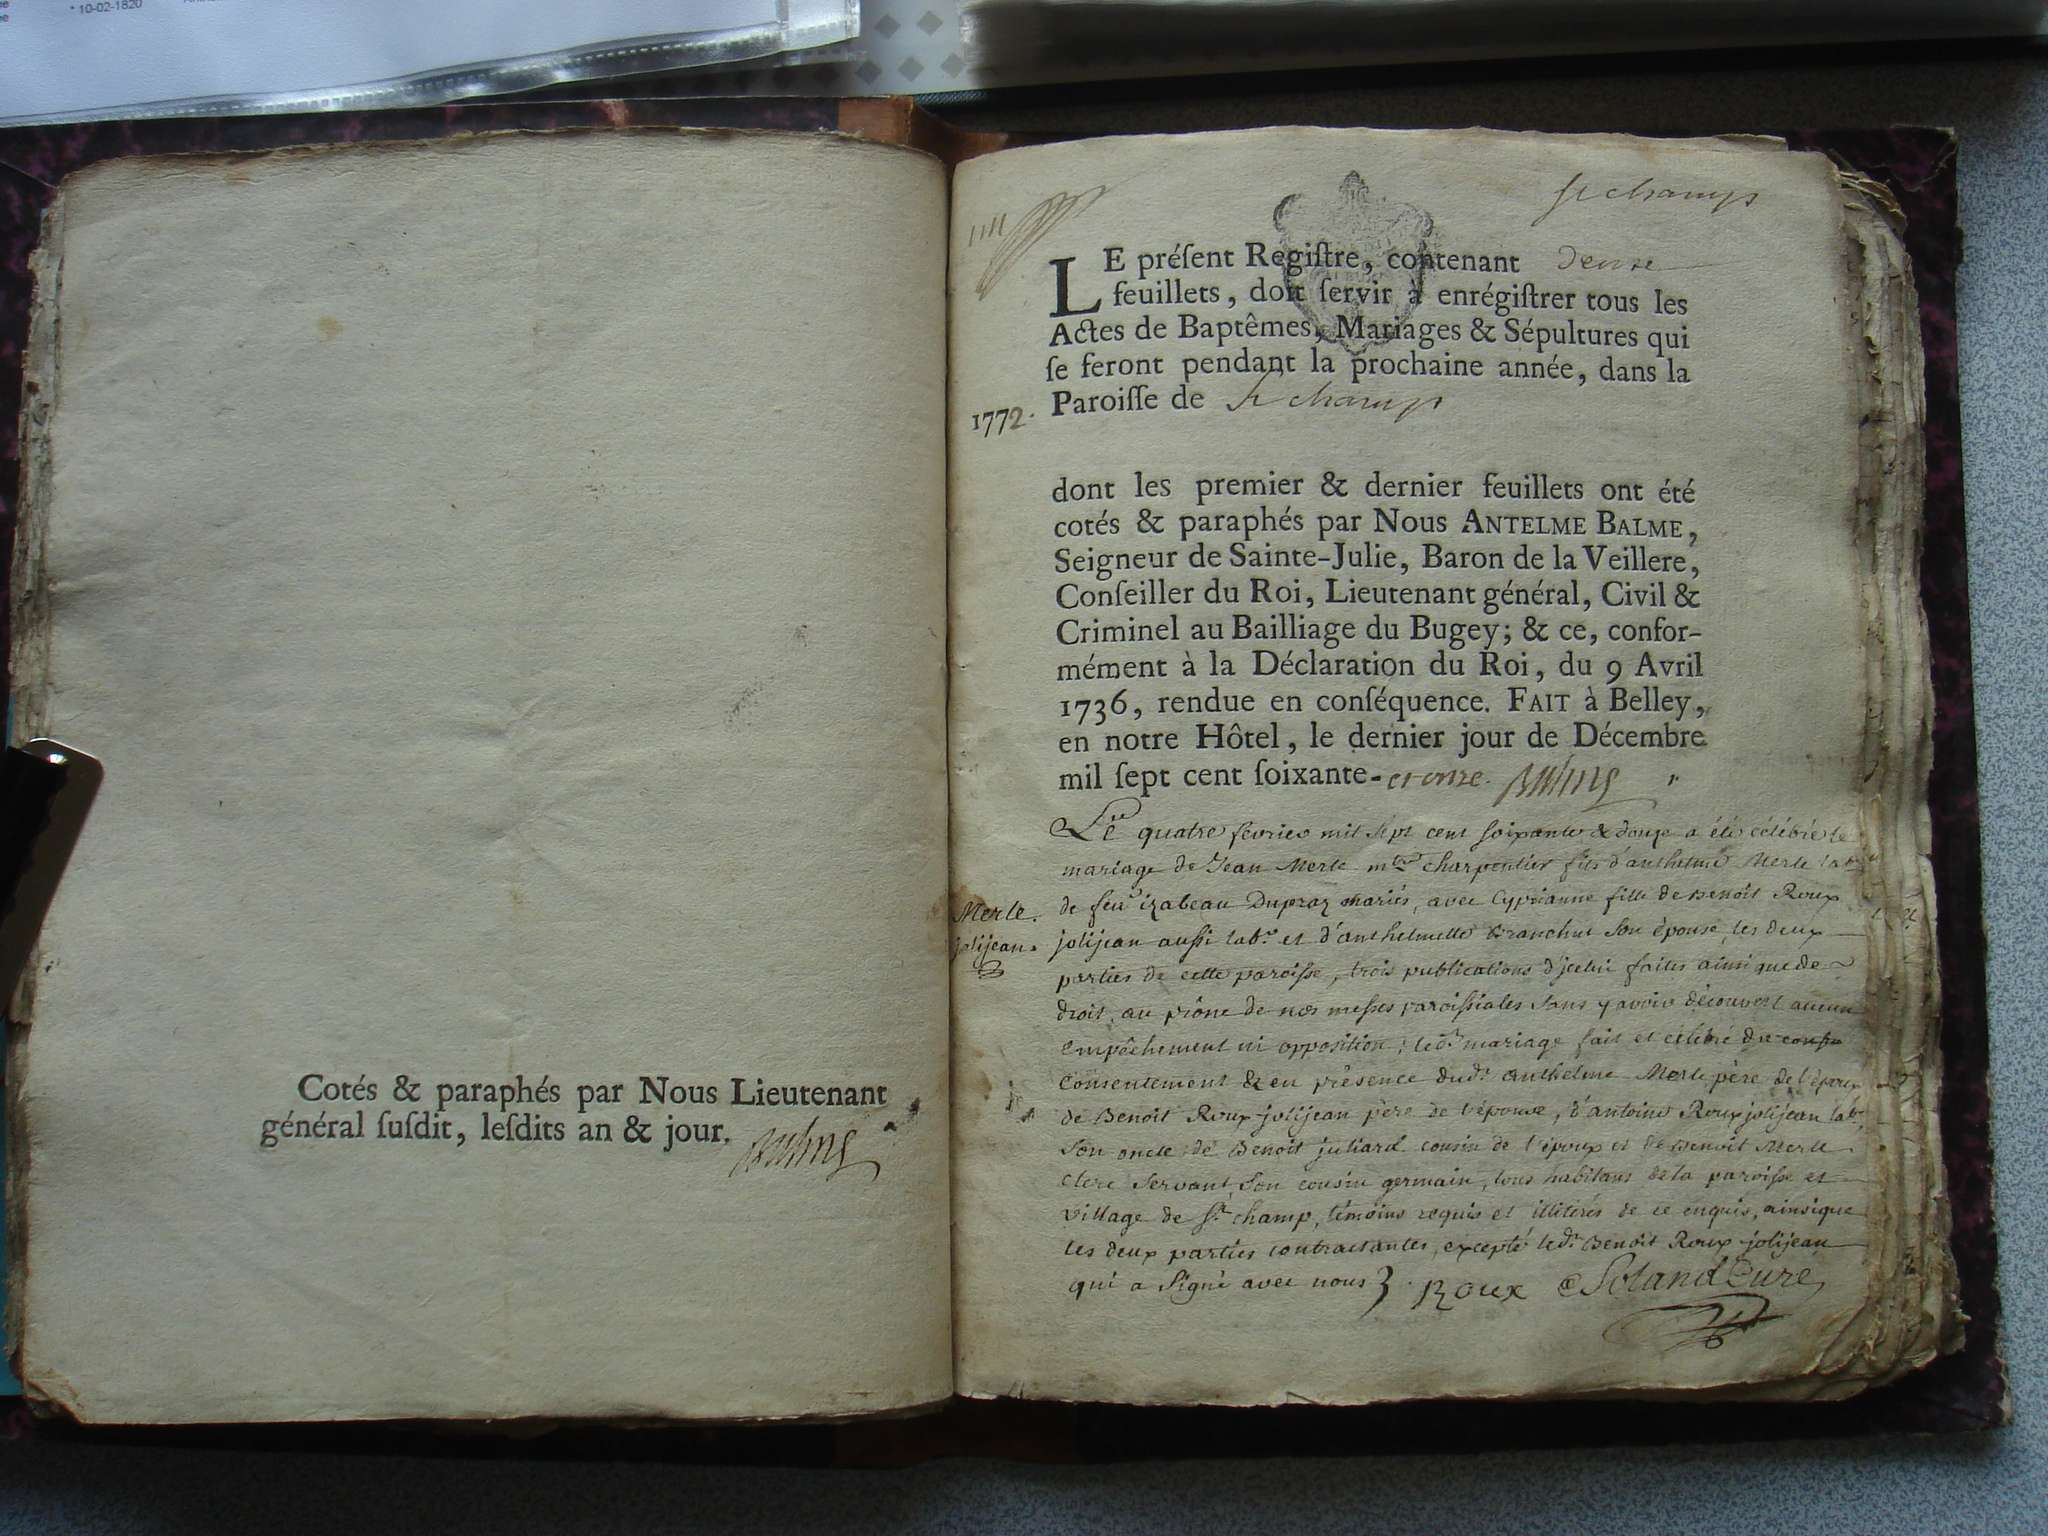 * 10-02-1820
Cotés & paraphés par Nous Lieutenant
général ſuſdit, leſdits an & jour.
St champ
LE préſent Regiſtre, contenant
feuillets, doit ſervir à enrégiſtrer tous les
Actes de Baptêmes, Mariages & Sépultures qui
ſe feront pendant la prochaine année, dans la
1772. Paroiſſe de St champ
dont les premier & dernier feuillets ont été
cotés & paraphés par Nous ANTELME BALME,
Seigneur de Sainte-Julie, Baron de la Veillere,
Conſeiller du Roi, Lieutenant général, Civil &
Criminel au Bailliage du Bugey; & ce, confor-
mément à la Déclaration du Roi, du 9 Avril
1736, rendue en conſéquence. FAIT à Belley,
en notre Hôtel, le dernier jour de Décembre
mil ſept cent ſoixante-et onze.
Le quatre fevrier mil sept cent soixante & douze a été célébré le
mariage de Jean Merle mtre charpentier fils d'anthelme Merle labr
Merle. de feue izabeau Dupraz mariés, avec Cyprianne fille de Benoit Roux
jolijean. jolijean aussi labr et d'anthelmette Branchut son épouse, les deux
parties de cette paroisse, trois publications d'jcelui faites ainsi que de
droit, au prône de nos messes paroissiales sans y avoir découvert aucun
empêchement ni opposition; ledt mariage fait et célébré du
consentement & en présence dudt anthelme Merle père de l'époux
de Benoit Roux jolijean père de l'épouse, d'antoine Roux jolijean labr
son oncle, de Benoit juliard cousin de l'époux et de Benoit Merle
clerc servant, son cousin germain, tous habitans de la paroisse et
village de St champ, témoins requis et illitérés de ce enquis, ainsi que
les deux parties contractantes, excepté ledt Benoit Roux jolijean
qui a signé avec nous Roux Soland Curé